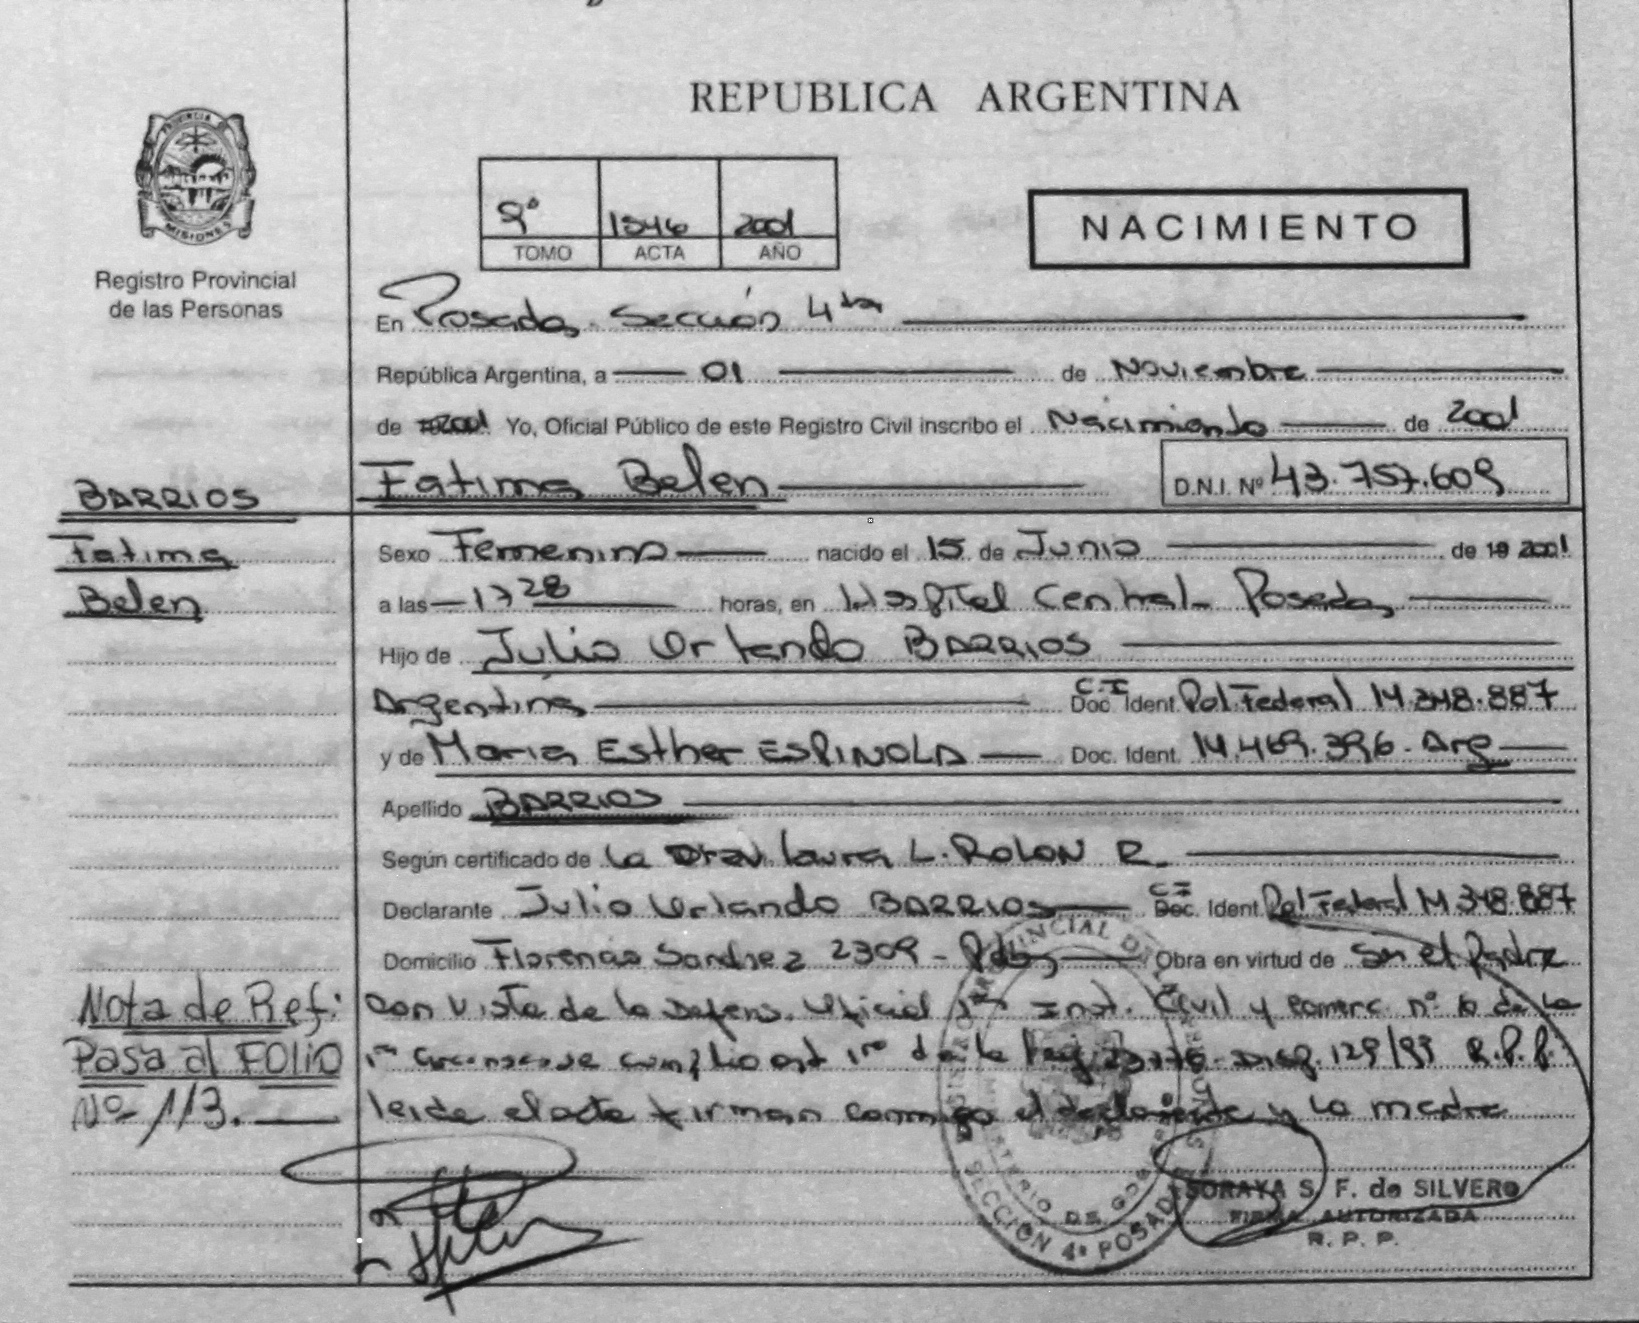 REPUBLICA ARGENTINA
PROVINCIA DE
MISIONES
Registro Provincial
de las Personas
9º 1546 2001
TOMO ACTA AÑO
NACIMIENTO
En Posadas Sección 4ta
República Argentina, a 01 de Noviembre
de 2001 Yo, Oficial Público de este Registro Civil inscribo el Nacimiento de 2001
Fatima Belen D.N.I. Nº 43.757.609
BARRIOS
Fatima
Belen
Sexo Femenino nacido el 15 de Junio de 19 2001
a las 17 28 horas, en Hospital Central Posadas
Hijo de Julio Orlando BARRIOS
Argentina C.I Doc Ident. Pol. Federal 14.348.887
y de Maria Esther ESPINOLA Doc. Ident. 14.469.396. Arg
Apellido BARRIOS
Según certificado de la Dra. Laura L. ROLON R.
Declarante Julio Orlando BARRIOS C I Doc. Ident. Pol Federal 14 348.887
Domicilio Florencio Sanchez 2309 - Pdas Obra en virtud de Ser el Padre
Nota de Ref:
Pasa al FOLIO
Nº 113.
con vista de la Defens. Oficial Inst. Civil y Comerc. nº de la
1ra cumplio art 1ro de la Ley Disp. 129/99 R.P.P.
leida el acta firman conmigo el declarante y la madre
SECCIÓN 4ª POSADAS
SORAYA S. F. de SILVERO
FIRMA AUTORIZADA
R. P. P.